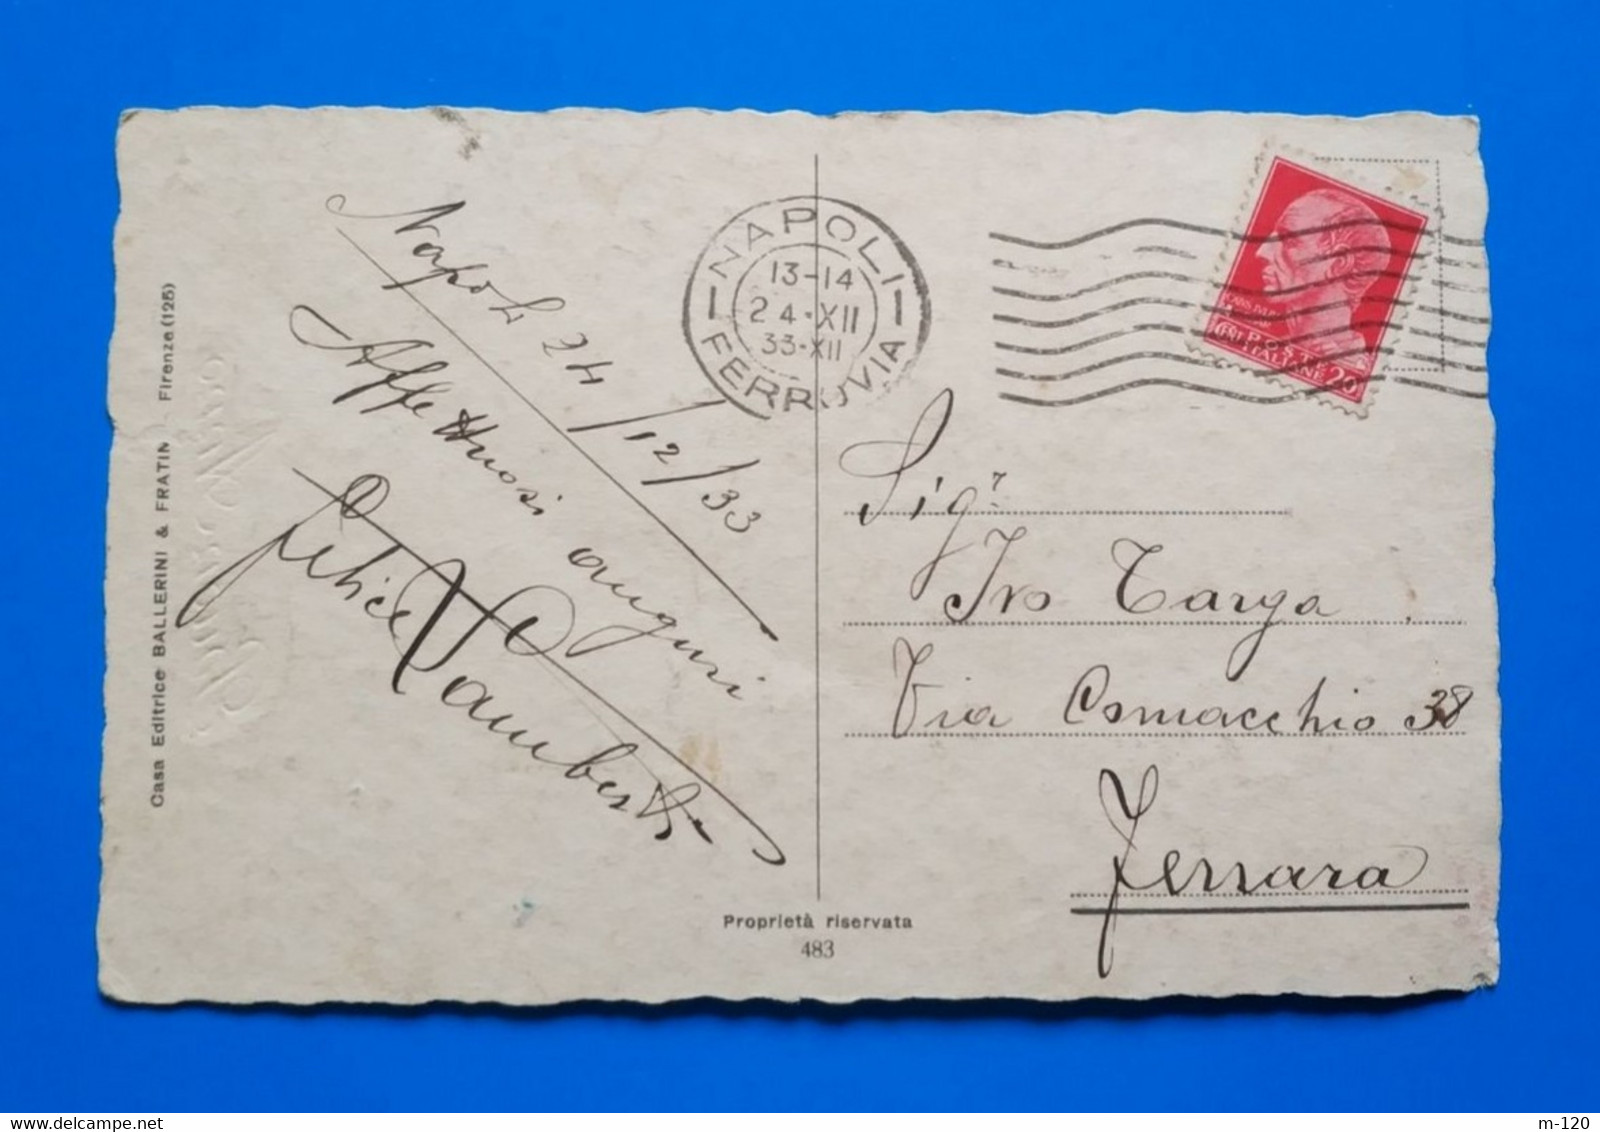 Napoli 24/12/33
Affettuosi auguri
Felice Lamberti
Casa Editrice BALLERINI & FRATIN Firenze (125)
NAPOLI
13-14
24·XII
33-XII
FERROVIA
POSTE
ITALIANE 20
Sigr
Ivo Targa
Via Comacchio 38
Ferrara
Proprietà riservata
483
www.delcampe.net
m-120